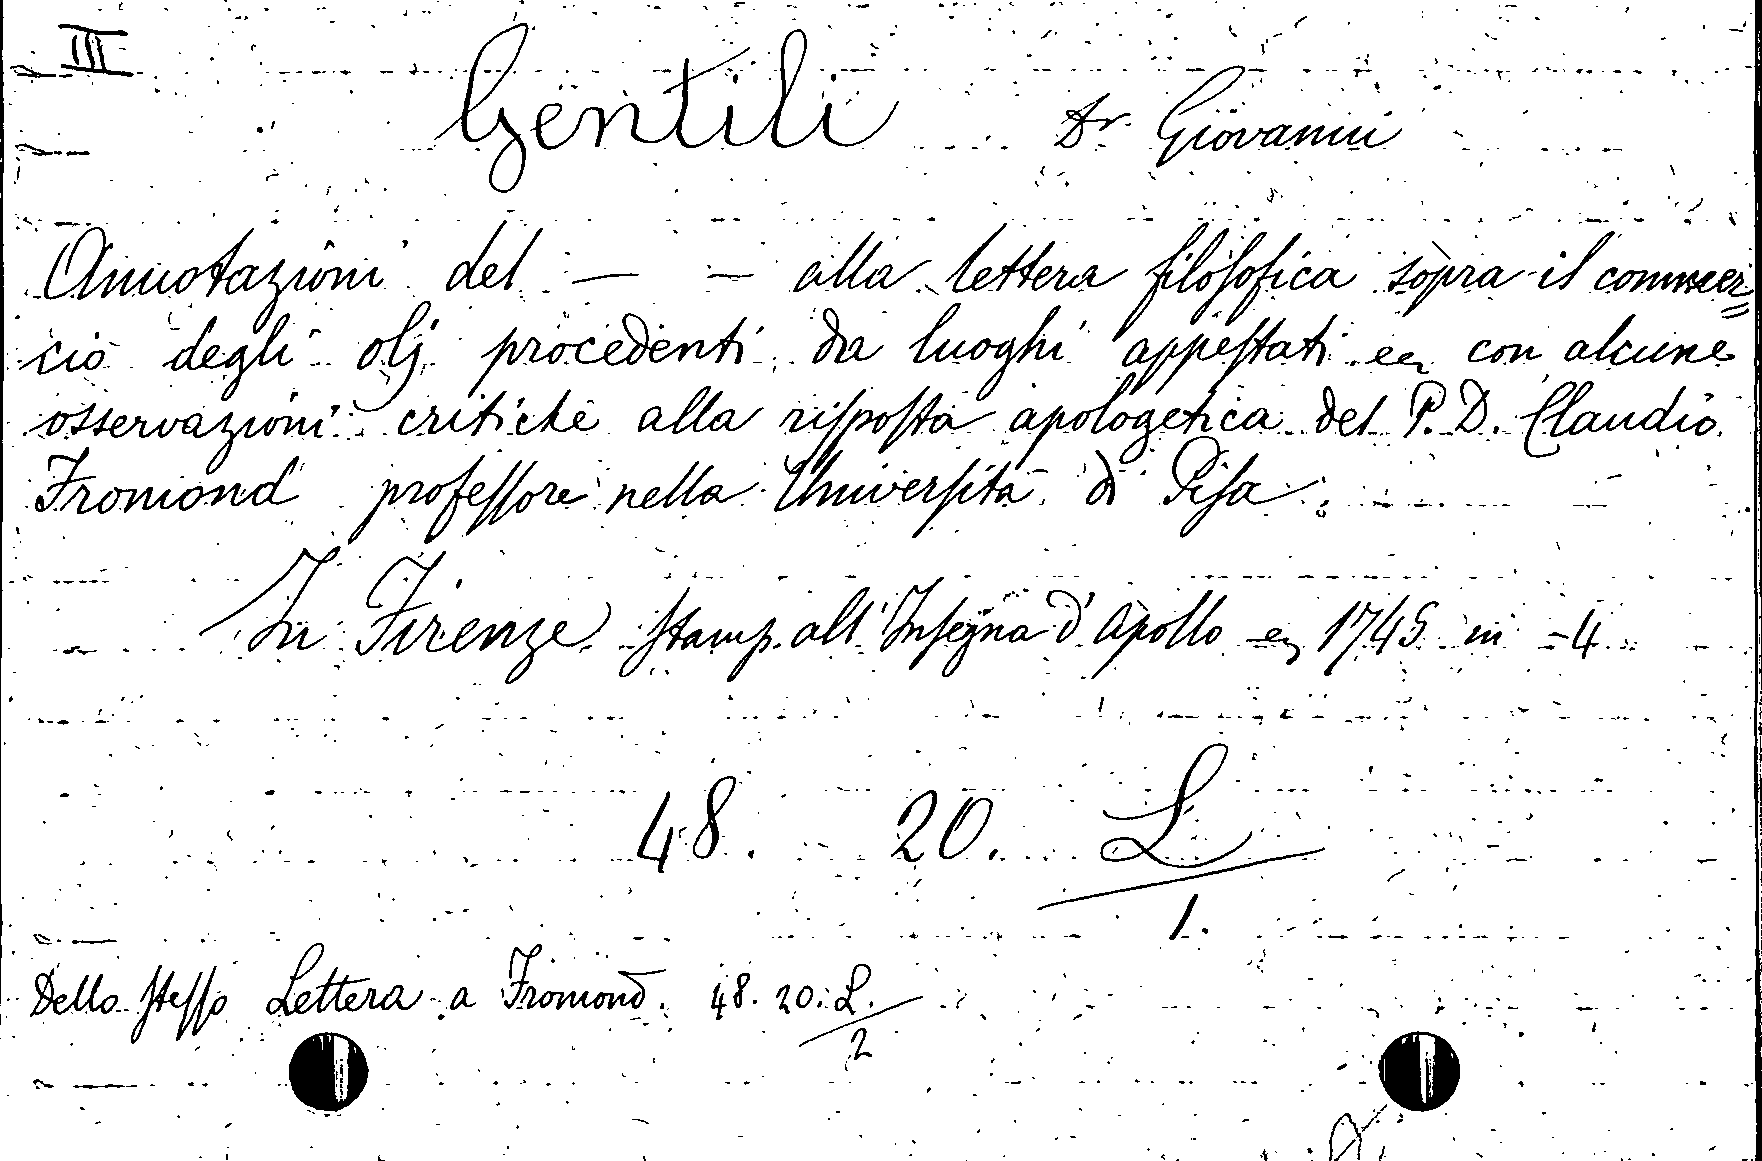 III
Gentili Dr. Giovanni
Annotazioni del — — alla lettera filosofica sopra il commer=
cio degli olj procedenti da luoghi appestati con alcune
osservazioni critiche alla risposta apologetica del P. D. Claudio
Fromond professore nella Università di Pisa.
In Firenze stamp. all'Insegna d'Apollo 1745 in -4
48. 20. L
1.
Dello stesso Lettera a Fromond. 48. 20. L.
2